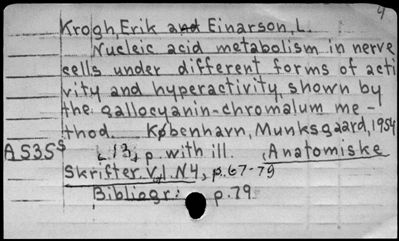 4
Krogh, Erik and Einarson, L.
Nucleic acid metabolism in nerve
cells under different forms of acti
vity and hyperactivity, shown by
the gallocyanin-chromalum me-
thod. København, Munksgaard, 1954
AS35S L 13, p. with ill. , Anatomiske
Skrifter. V.1 N4, p.67-79
Bibliogr: p.79